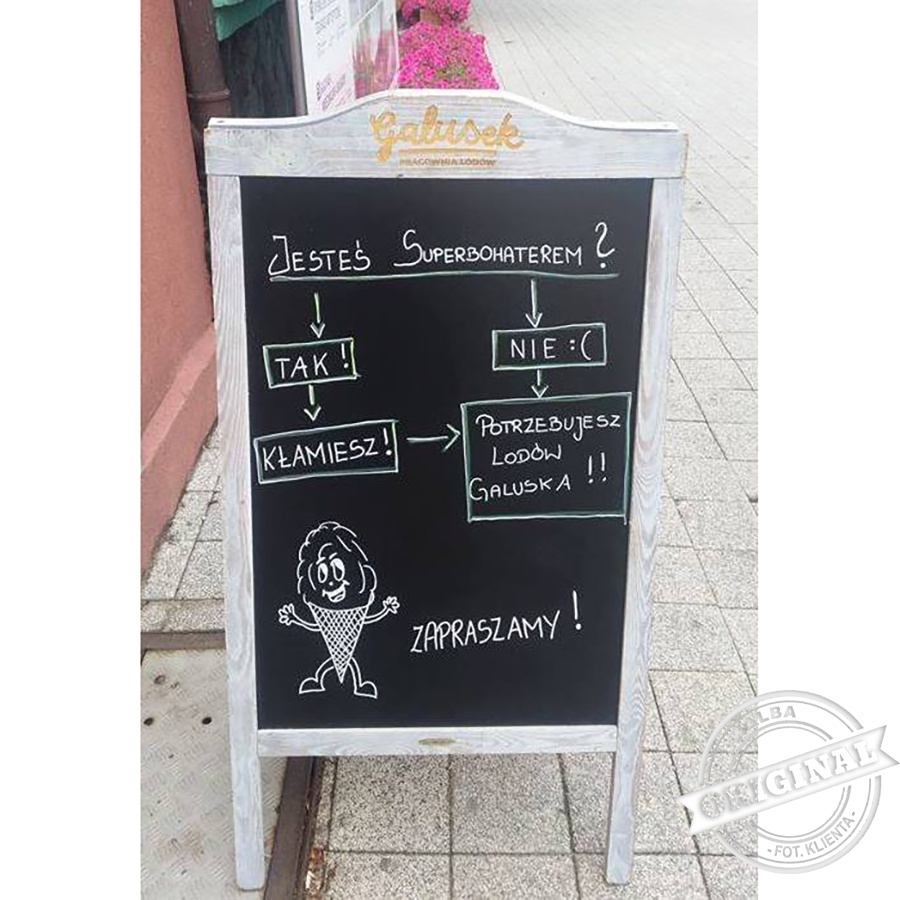 Galusek
PRACOWNIA LODÓW
JESTEŚ SUPERBOHATEREM?
TAK!
NIE :(
KŁAMIESZ!
POTRZEBUJESZ
LODÓW
GALUSKA !!
ZAPRASZAMY!
ALBA
ORIGINAL
- FOT. KLIENTA -